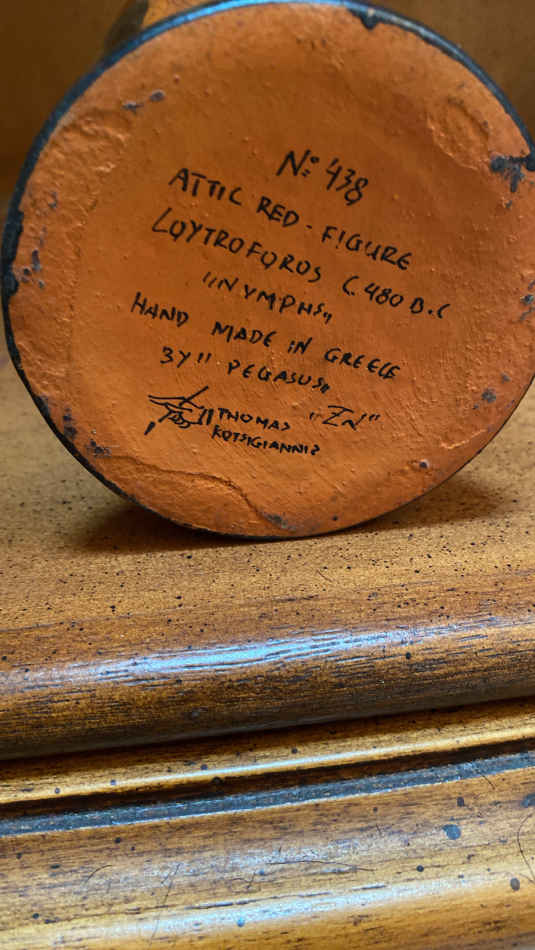 Nº 438
ATTIC RED-FIGURE
LOYTROFOROS C.480 B.C
"NYMPHS"
HAND MADE IN GREECE
BY "PEGASUS"
THOMAS
KOTSIGIANNIS